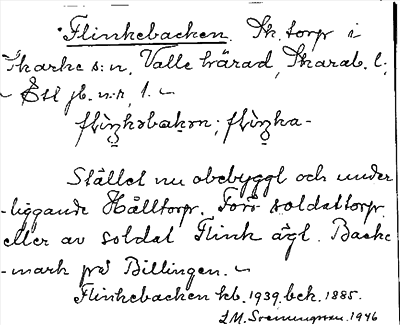 Flinkebacken. Sk. torp i
Skarke s:n, Valle härad, Skarab. l.;
Ett jb. n:r, 1.
Stället nu obebyggt och under
-liggande Hålltorp. Förr soldattorp
eller av soldat Flink ägt. Back
-mark på Billingen.
Flinkebacken hb. 1939, bek. 1885.
1946